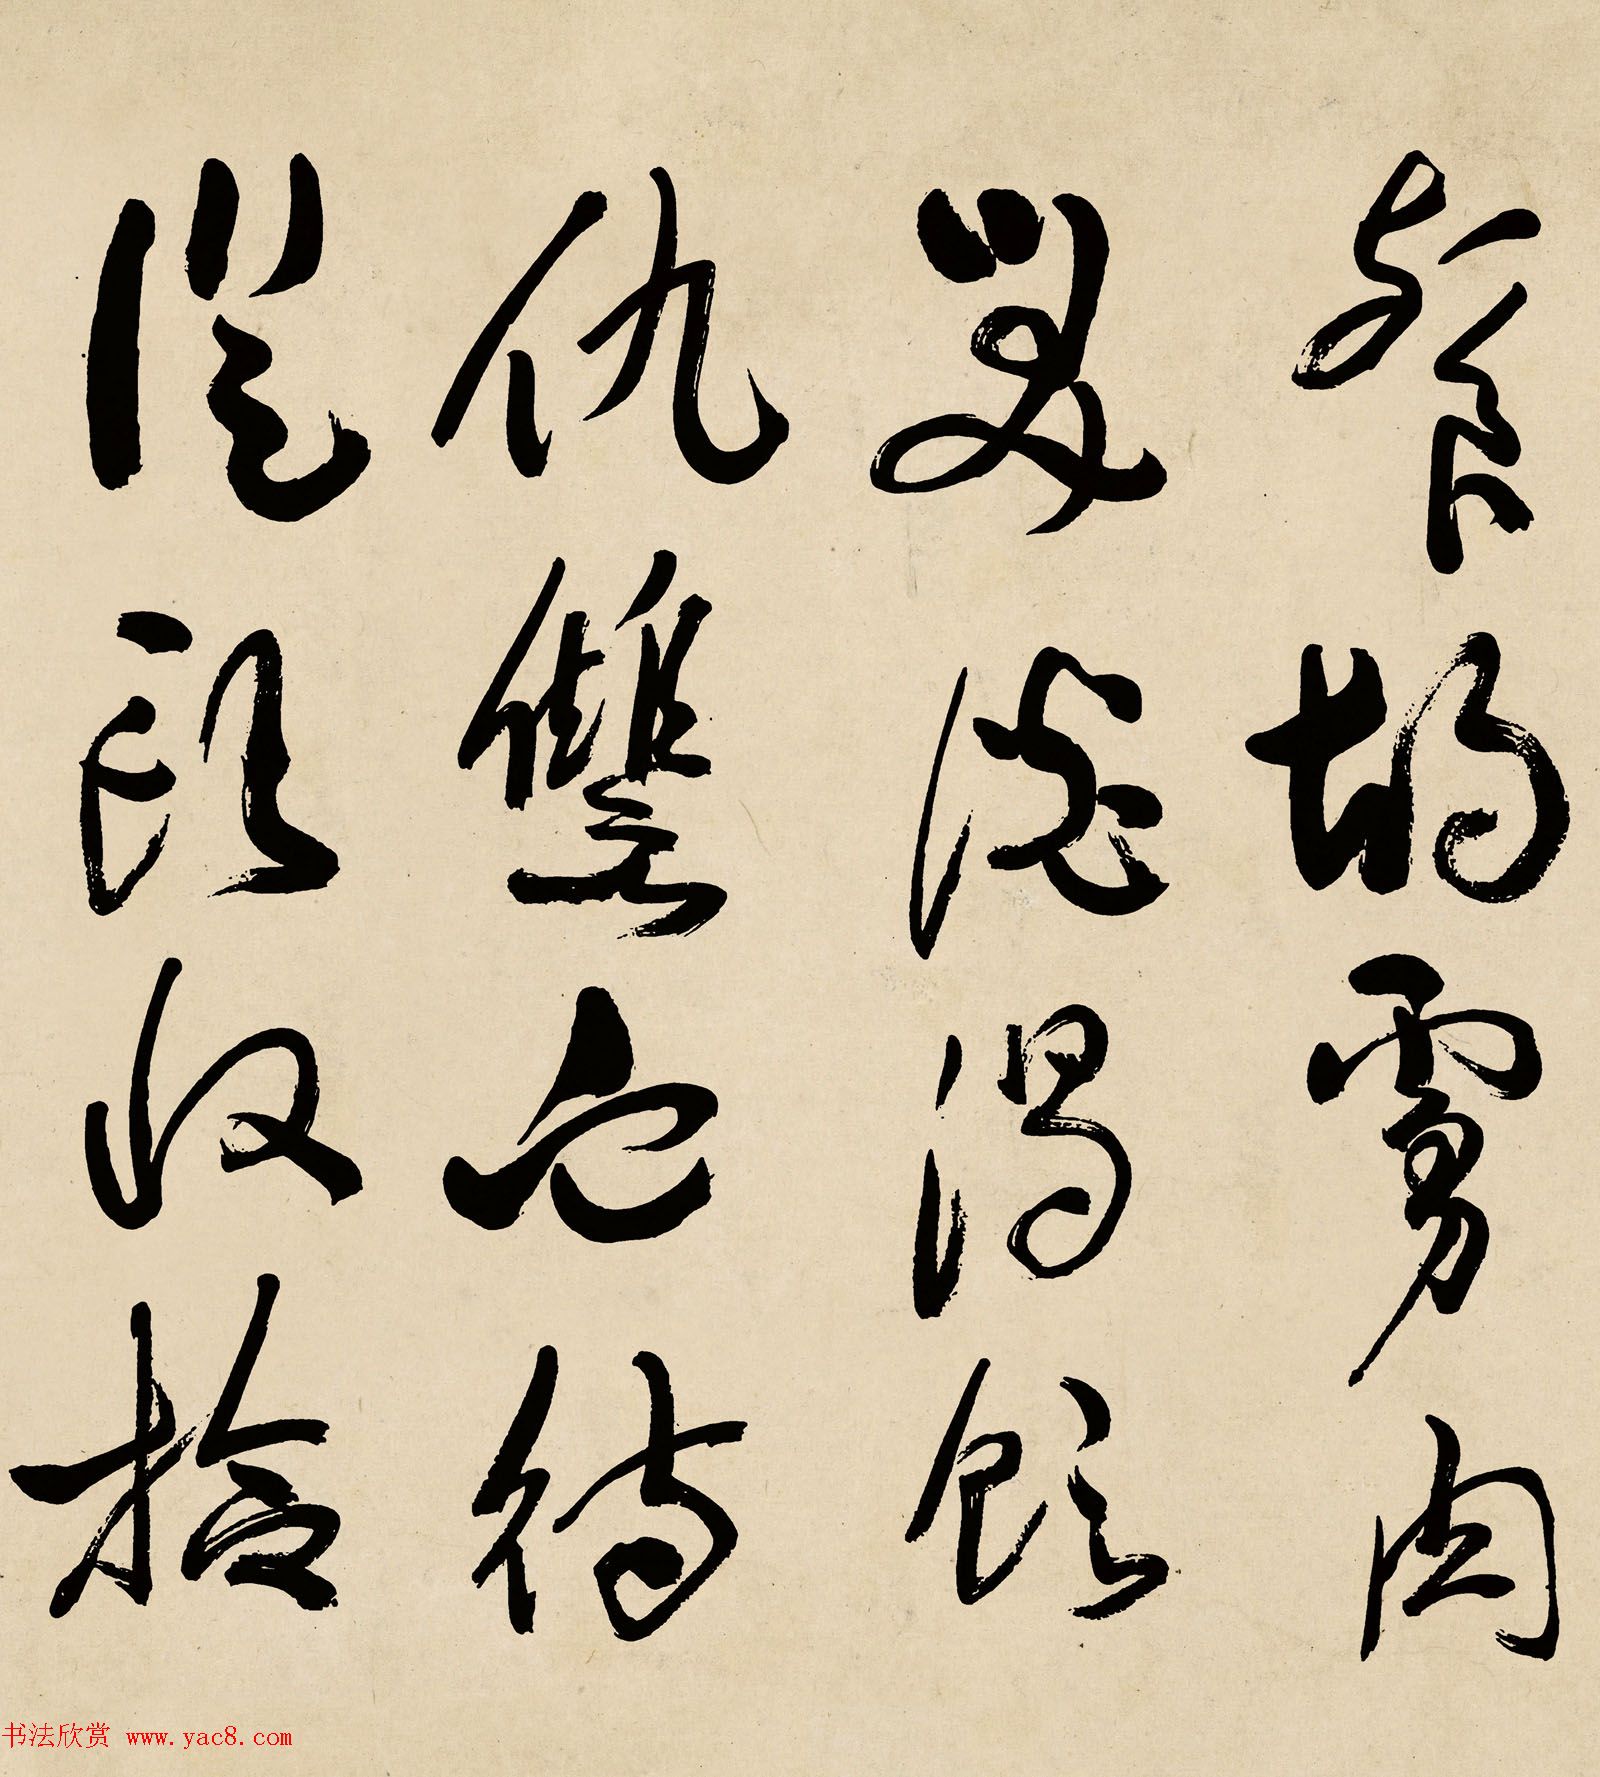 餐胡虜肉
笑談渴飲
仇讐血待
從頭收拾
书法欣赏 www.yac8.com